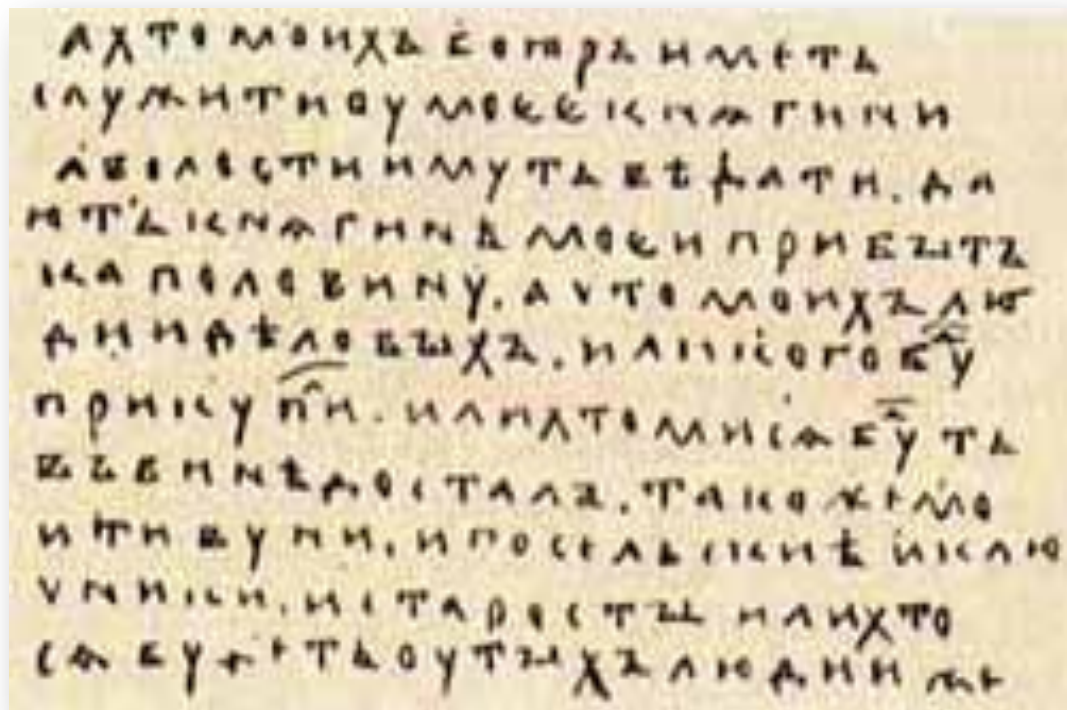 а хто моихъ бояръ иметь
служити оу моеѣ кнѧгини
а волости имуть вѣдати. да
ють кнѧгинѣ моеи прибытъ
ка половину. а что моихъ лю
дии дѣловыхъ. или кого бꙋ
прикупи̂л. или хто ми сѧ буть
въ винѣ досталъ. тако же мо
и тивуни. и посельскиѣ и клю
чники. и старосты или хто
сѧ будеть оу тыхъ людии же